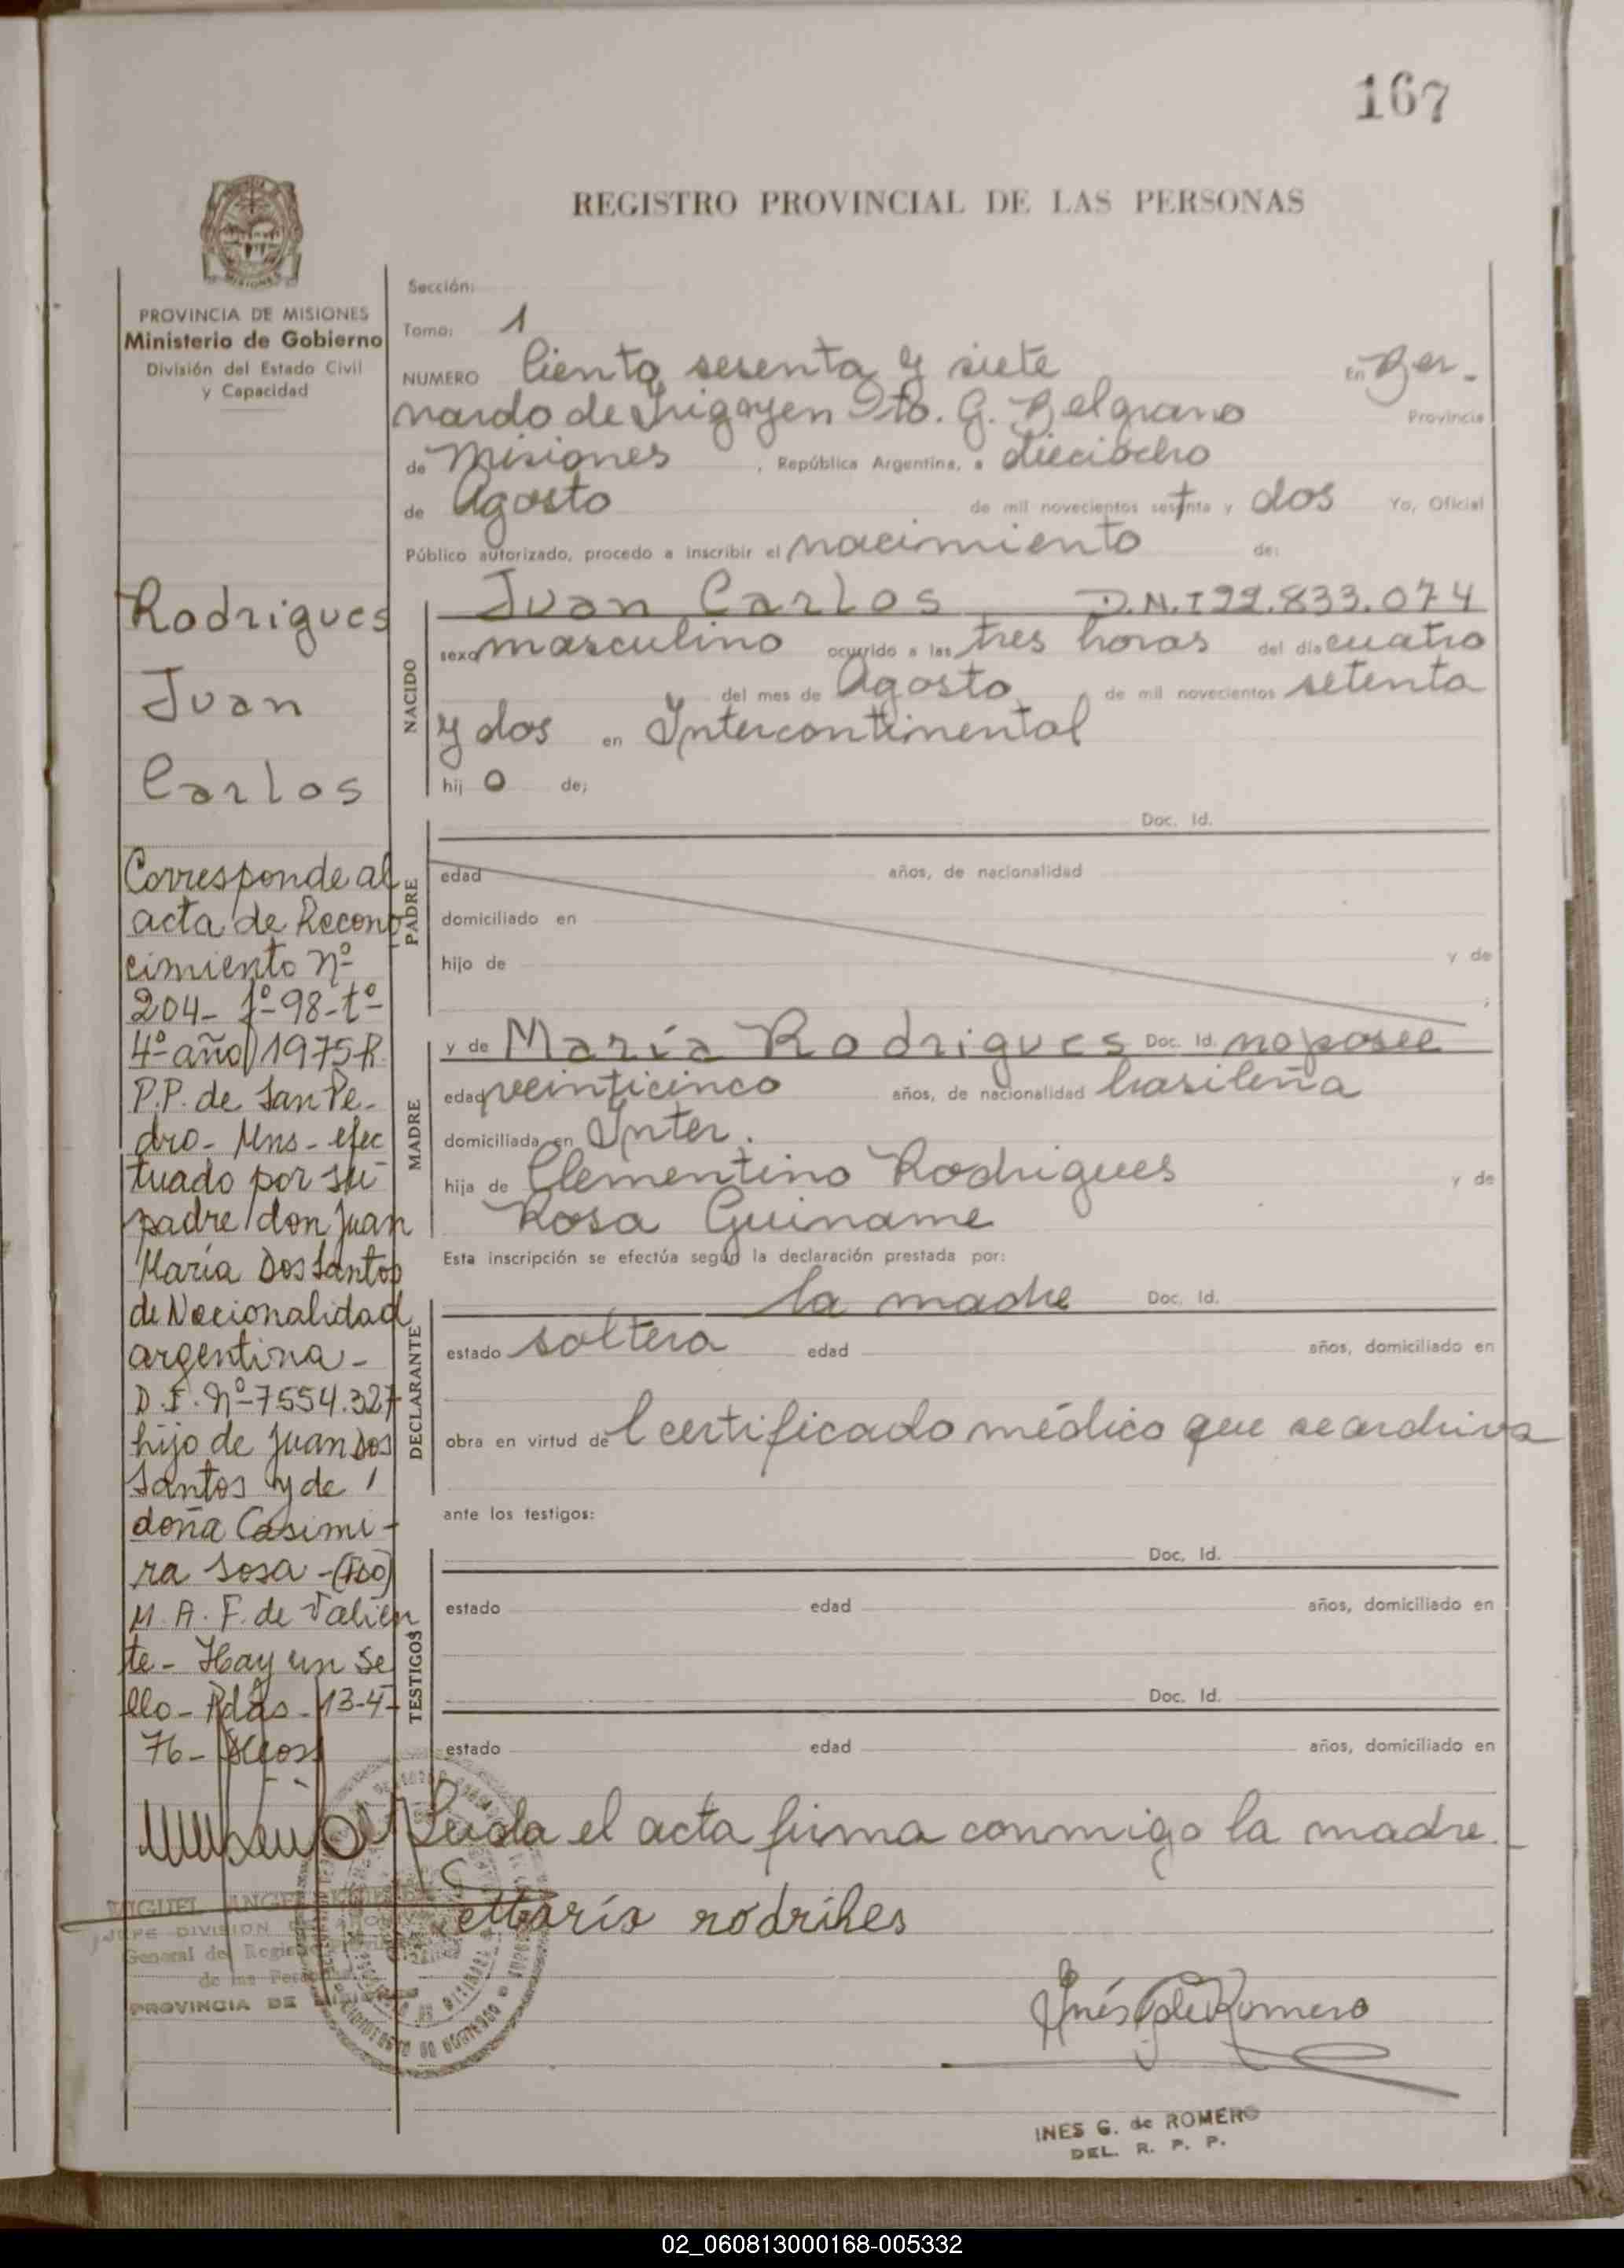 167
REGISTRO PROVINCIAL DE LAS PERSONAS
MISIONES
PROVINCIA DE MISIONES
Ministerio de Gobierno
División del Estado Civil
y Capacidad
Rodrigues
Juan
Carlos
Corresponde al
acta de Recono
cimiento nº
204- fº-98-tº
4º año 1975 R.
P.P. de San Pe-
dro- Mns- efec
tuado por su
padre don Juan
María Dos Santos
de Nacionalidad
argentina-
D.I. Nº-7554.327
hijo de Juan Dos
Santos y de
doña Casimi-
ra Sosa-(Fdo)
M.A.F. de Valien
te- Hay un Se
llo- Pdas- 13-4-
76-
MIGUEL ANGEL
JEFE DIVISION
General del Registro
de las Personas
PROVINCIA DE MISIONES
Sección:
Tomo: 1
NUMERO Ciento sesenta y siete En Ber-
nardo de Irigoyen Dto. G. Belgrano Provincia
de Misiones , República Argentina, a dieciocho
de Agosto de mil novecientos setenta y dos Yo, Oficial
Público autorizado, procedo a inscribir el nacimiento de:
NACIDO
Juan Carlos D.N.I 22.833.074
sexo masculino ocurrido a las tres horas del día cuatro
del mes de Agosto de mil novecientos setenta
y dos en Intercontinental
hij o de;
PADRE
Doc. Id.
edad años, de nacionalidad
domiciliado en
hijo de y de
;
MADRE
y de María Rodrigues Doc. Id. no posee
edad veinticinco años, de nacionalidad brasileña
domiciliada en Inter.
hija de Clementino Rodrigues y de
Rosa Guiname
Esta inscripción se efectúa según la declaración prestada por:
DECLARANTE
la madre Doc. Id.
estado soltera edad años, domiciliado en
obra en virtud de l certificado médico que se archiva
ante los testigos:
TESTIGOS
Doc. Id.
estado edad años, domiciliado en
Doc. Id.
estado edad años, domiciliado en
Leida el acta firma conmigo la madre.
María rodrihes
Inés G de Romero
INES G. de ROMERO
DEL. R. P. P.
02_060813000168-005332